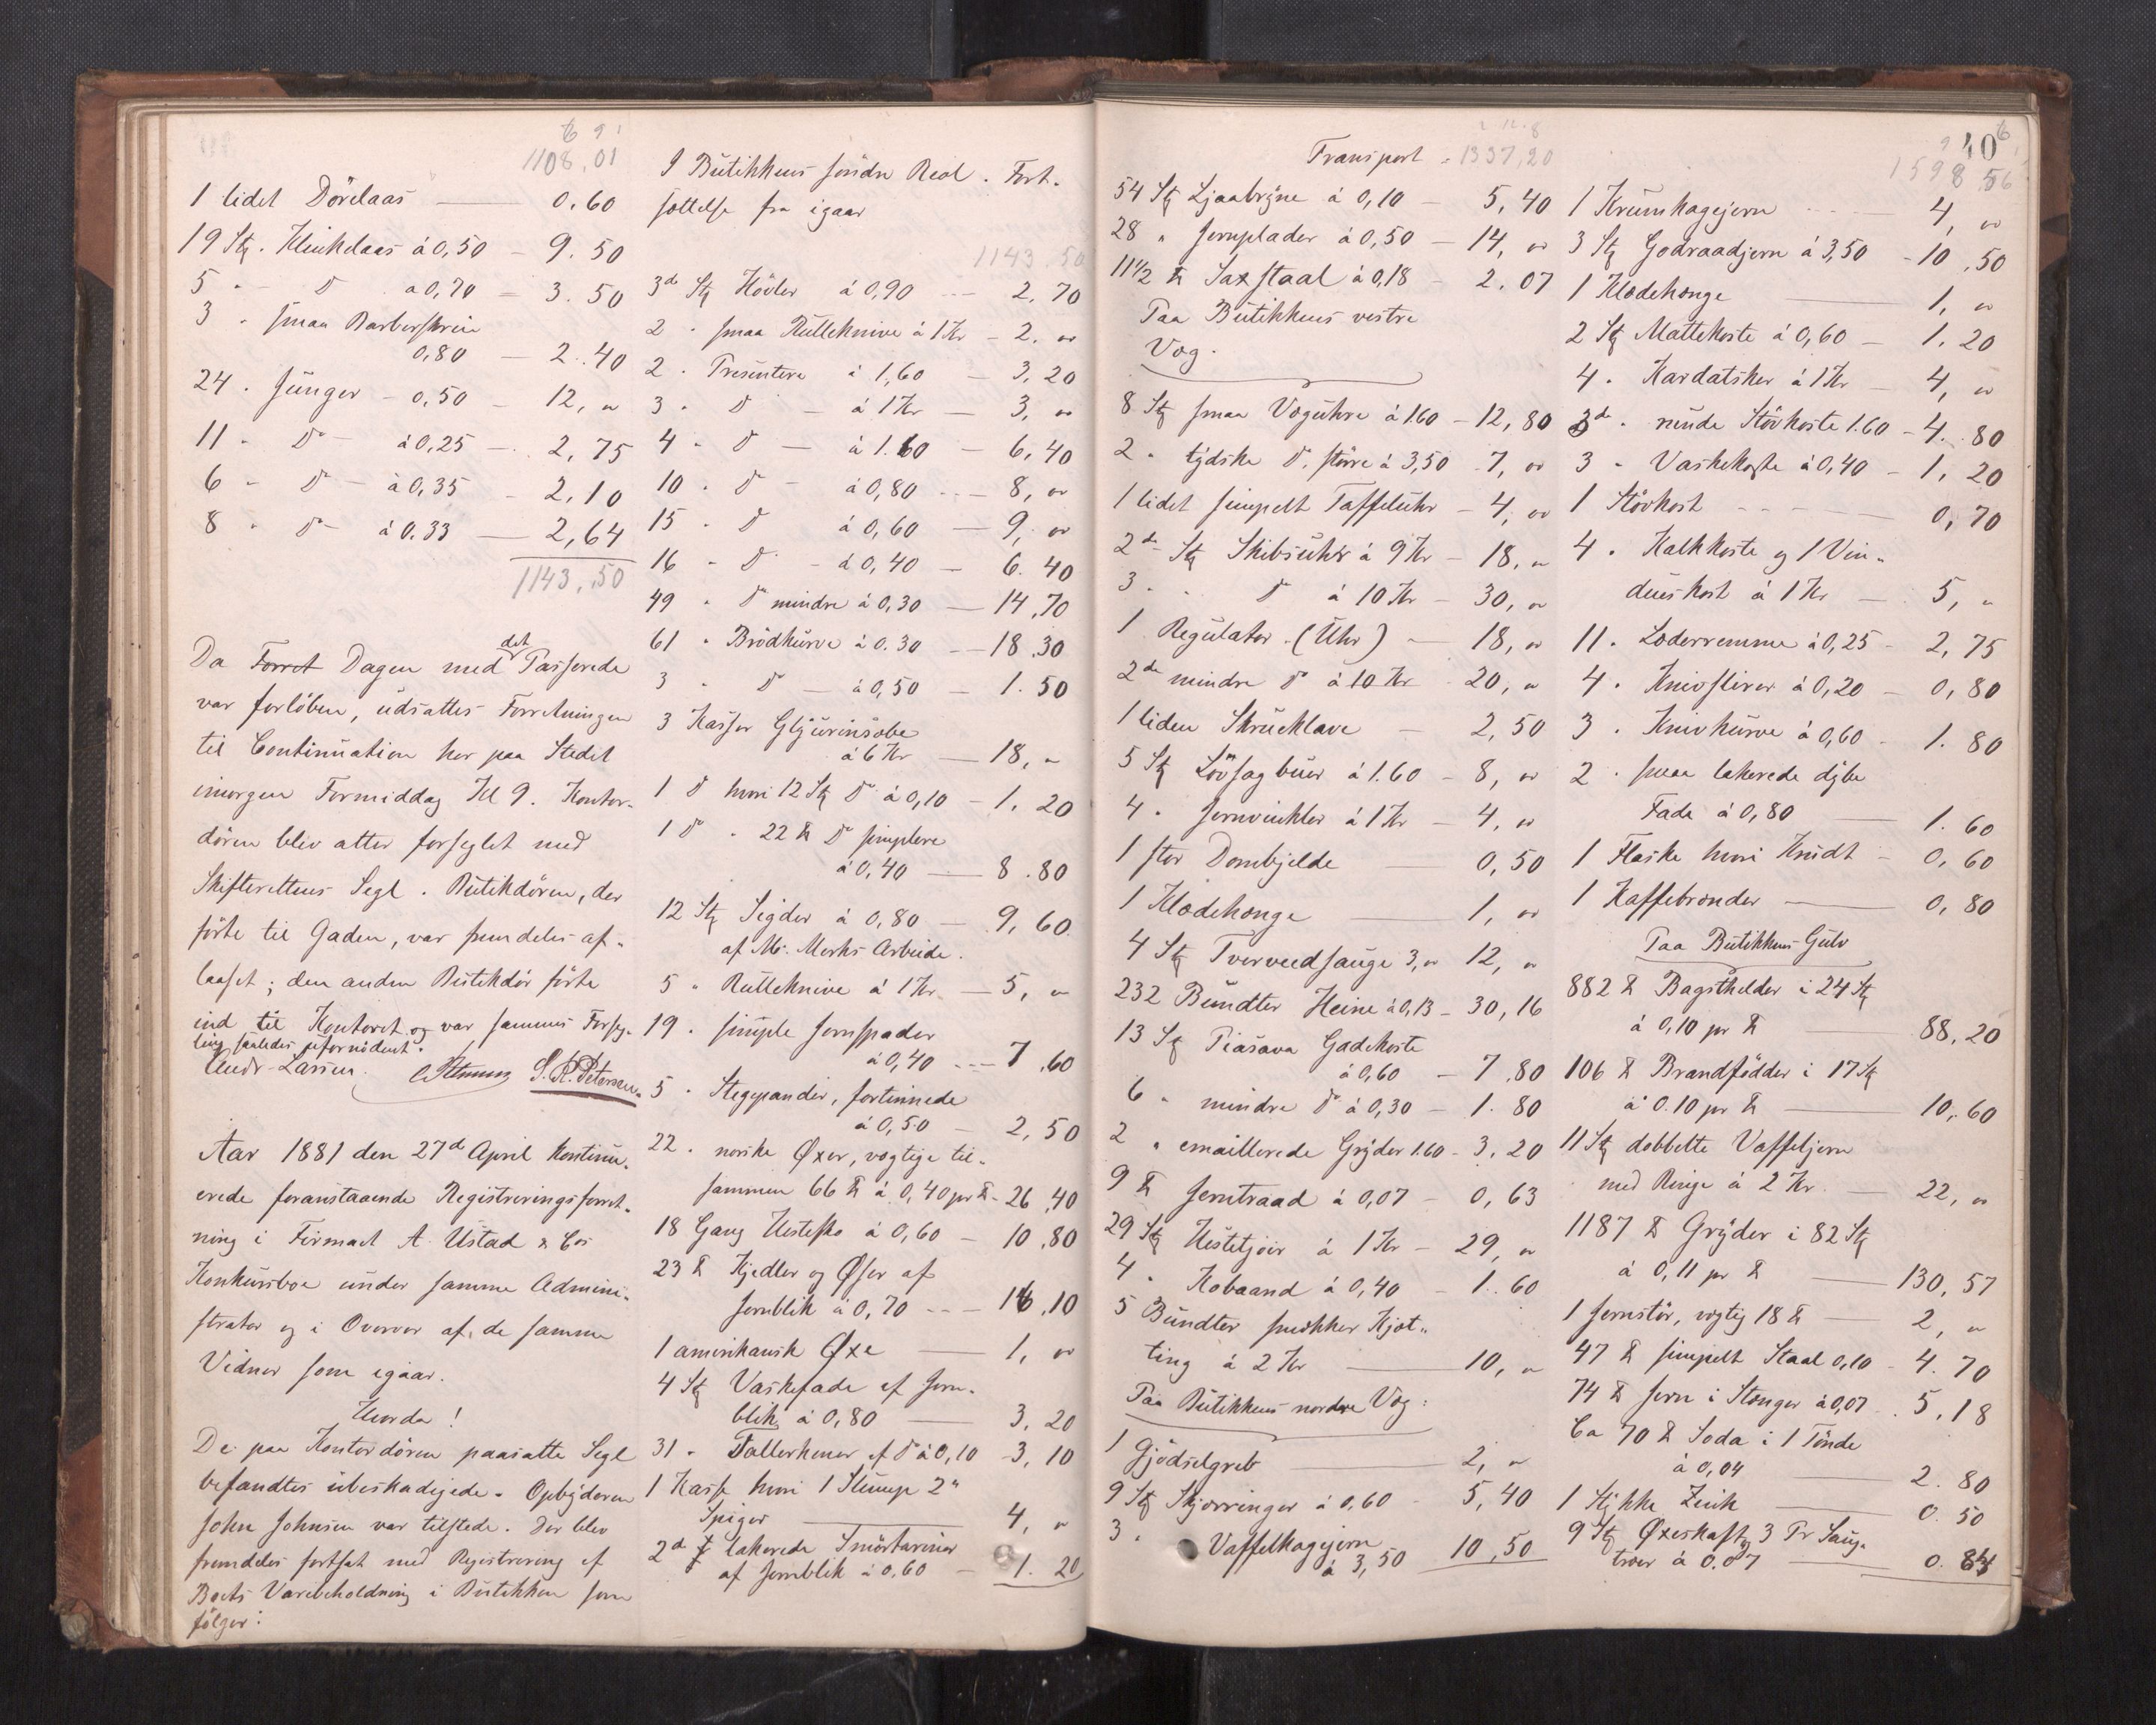 1108,01
1 lidet Dörelaas — 0.60
19 Stk. Klinkelaas à 0,50 — 9.50
5 " — do à 0,70 — 3.50
3 " smaa Barberskrin
0,80 — 2.40
24 " Junger — 0,50 — 12, "
11 " do — à 0,25 — 2,75
6 " do — à 0,35 — 2,10
8 " do — à 0.33 — 2,64
1143,50
Da Forret Dagen med det Passerede
var forlöben, udsattes Forretningen
til Continuation her paa Stedet
imorgen Formiddag Kl 9. Kontor-
dören blev atter forseglet med
Skifterettens Segl. Butikdören, der
förte til Gaden, var fremdeles af-
laaset; den anden Butikdör förte
ind til Kontoret og var sammes Forseg-
ling saaledes ufornödent.
Andr. Larsen. S. R. Petersen.
Aar 1881 den 27de April kontinu-
erede foranstaaende Registreringsforret-
ning i Firmaet A. Ustad & Co's
Konkursboe under samme Admini-
strator og i Overvær af de samme
Vidner som igaar.
Hvorda!
De paa Kontordören paasatte Segl
befandtes ubeskadigede. Opbyderen
John Johnsen var tilstede. Der blev
fremdeles fortsat med Registrering af
Boets Varebeholdning i Butikken som
fölger:
I Butikkens söndre Reol. Fort-
sættelse fra igaar
1143.50
3de Stk Hövler à 0,90 — 2.70
2 " smaa Rulleknive à 1 Kr — 2. "
2 " Presentere à 1,60 — 3,20
3 " do — à 1 Kr — 3, "
4 " do — à 1.60 — 6,40
10 " do — à 0,80 — 8, "
15 " do à 0,60 — 9, "
16 " do — à 0,40 — 6.40
49 " do mindre à 0,30 — 14,70
61 " Brödkurve à 0.30 — 18.30
3 " do — à 0,50 — 1.50
3 Kasser Glyurinsæbe
à 6 Kr — 18, "
1 do hvori 12 Stk do à 0,10 — 1.20
1 do " 22 ℔ do simplere
à 0,40 — 8.80
12 Stk Sigder à 0,80 — 9,60
af Mr. Morks Arbeide.
5 " Rulleknive à 1 Kr. — 5, "
19 " simple Jernspader
à 0,40 — 7,60
5 " Stegepander, fortinnede
à 0,50 — 2,50
22 " norske Øxer, vægtige til-
sammen 66 ℔ à 0,40 pr ℔ — 26,40
18 Gang Hestesko à 0,60 — 10,80
23 ℔ Kjedler og Øser af
Jernblik à 0,70 — 16,10
1 amerikansk Øxe — 1, "
4 Stk Vaskefade af Jern-
blik à 0,80 — 3,20
31 " Tallerkener af do à 0,10 — 3,10
1 Kasse hvori 1 Slump 2"
Spiger — 4, "
2de lakerede Smörtariner
af Jernblik à 0,60 — 1.20
Transport 1337,20
54 Stk Ljaabryne à 0,10 — 5,40
28 " Jernplader à 0,50 — 14, "
11 1/2 ℔ Saxstaal à 0,18 — 2.07
Paa Butikkens vestre
Væg.
8 Stk smaa Væguhre à 1.60 — 12,80
2 " tydske do. större à 3,50 — 7, "
1 lidet simpelt Taffeluhr — 4, "
2de Stk Skibsuhr à 9 Kr — 18, "
3 " do à 10 Kr — 30, "
1 Regulator. (Uhr) — 18, "
2de mindre do à 10 Kr — 20, "
1 liden Skrueklave — 2,50
5 Stk Lövsagbuer à 1.60 — 8, "
4 " Jernvinkler à 1 Kr — 4, "
1 stor Dombjelde — 0,50
1 Klædehænge — 1, "
4 Stk Tverveedsauge 3, " 12, "
232 Bundter Heine à 0,13 — 30,16
13 Stk Piasava Gadekoste
à 0,60 — 7,80
6 " mindre do à 0,30 — 1.80
2 " emaillerede Gryder 1.60 — 3.20
9 ℔ Jerntraad à 0,07 — 0,63
29 Stk Hestetjoir à 1 Kr — 29, "
4 " Kobaand à 0,40 — 1.60
5 Bundter smökker Kjæt-
ting à 2 Kr — 10, "
Paa Butikkens nordre Væg:
1 Gjödselgreb — 2, "
9 Stk Skjærringer à 0,60 — 5,40
3 " Vaffelkagejern
à 3,50 10,50
40
1598,56
1 Krumkagejern — 4, "
3 Stk Godraadjern à 3,50 — 10,50
1 Klædehænge — 1, "
2 Stk Mattekoste à 0,60 — 1.20
4 " Kardatsker à 1 Kr — 4, "
3de " runde Stövkoste 1.60 — 4.80
3 " Vaskekoste à 0,40 — 1,20
1 Stövkost — 0,70
4 " Kalkkoste og 1 Vin-
dueskost à 1 Kr — 5, "
11 " Læderremme à 0,25 — 2,75
4 " Knivslirer à 0,20 — 0,80
3 " Knivkurve à 0,60 — 1.80
2 " smaa lakerede dybe
Fade à 0,80 — 1.60
1 Flaske hvori Krudt — 0,60
1 Kaffebrænder — 0,80
Paa Butikkens Gulv
882 ℔ Bagsthelder i 24 Stk
à 0,10 pr ℔ — 88,20
106 ℔ Brandfödder i 17 Stk
à 0.10 pr ℔ — 10,60
11 Stk dobbelte Vaffeljern
med Ringe à 2 Kr. — 22, "
1187 ℔ Gryder i 82 Stk
à 0,11 pr ℔ — 130,57
1 Jernstör, vægtig 18 ℔ — 2, "
47 ℔ simpelt Staal 0,10 — 4.70
74 ℔ Jern i Stænger à 0,07 — 5,18
Ca 70 ℔ Soda i 1 Tönde
à 0,04 — 2.80
1 Stykke Zink — 0.50
9 Stk Øxeskaft, 3 Pr Saug-
træer à 0.07 — 0.84